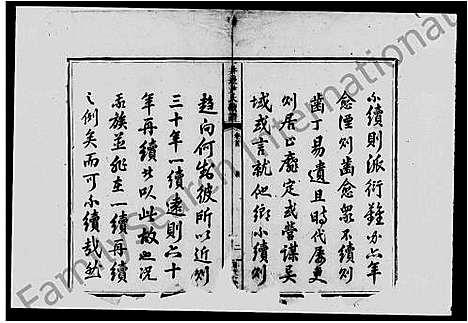 不續則派衍難分六年
愈湮則齒愈衆不續則
齒丁易遺且時代屢更
則居止靡定或營謀吴
域或言就他鄉不續則
趋向何
彼所以近則
三十年一續遠則六十
年再續此以此故也况
吾族並
在一續再續
之例矣而可不續哉然
FamilySearch International